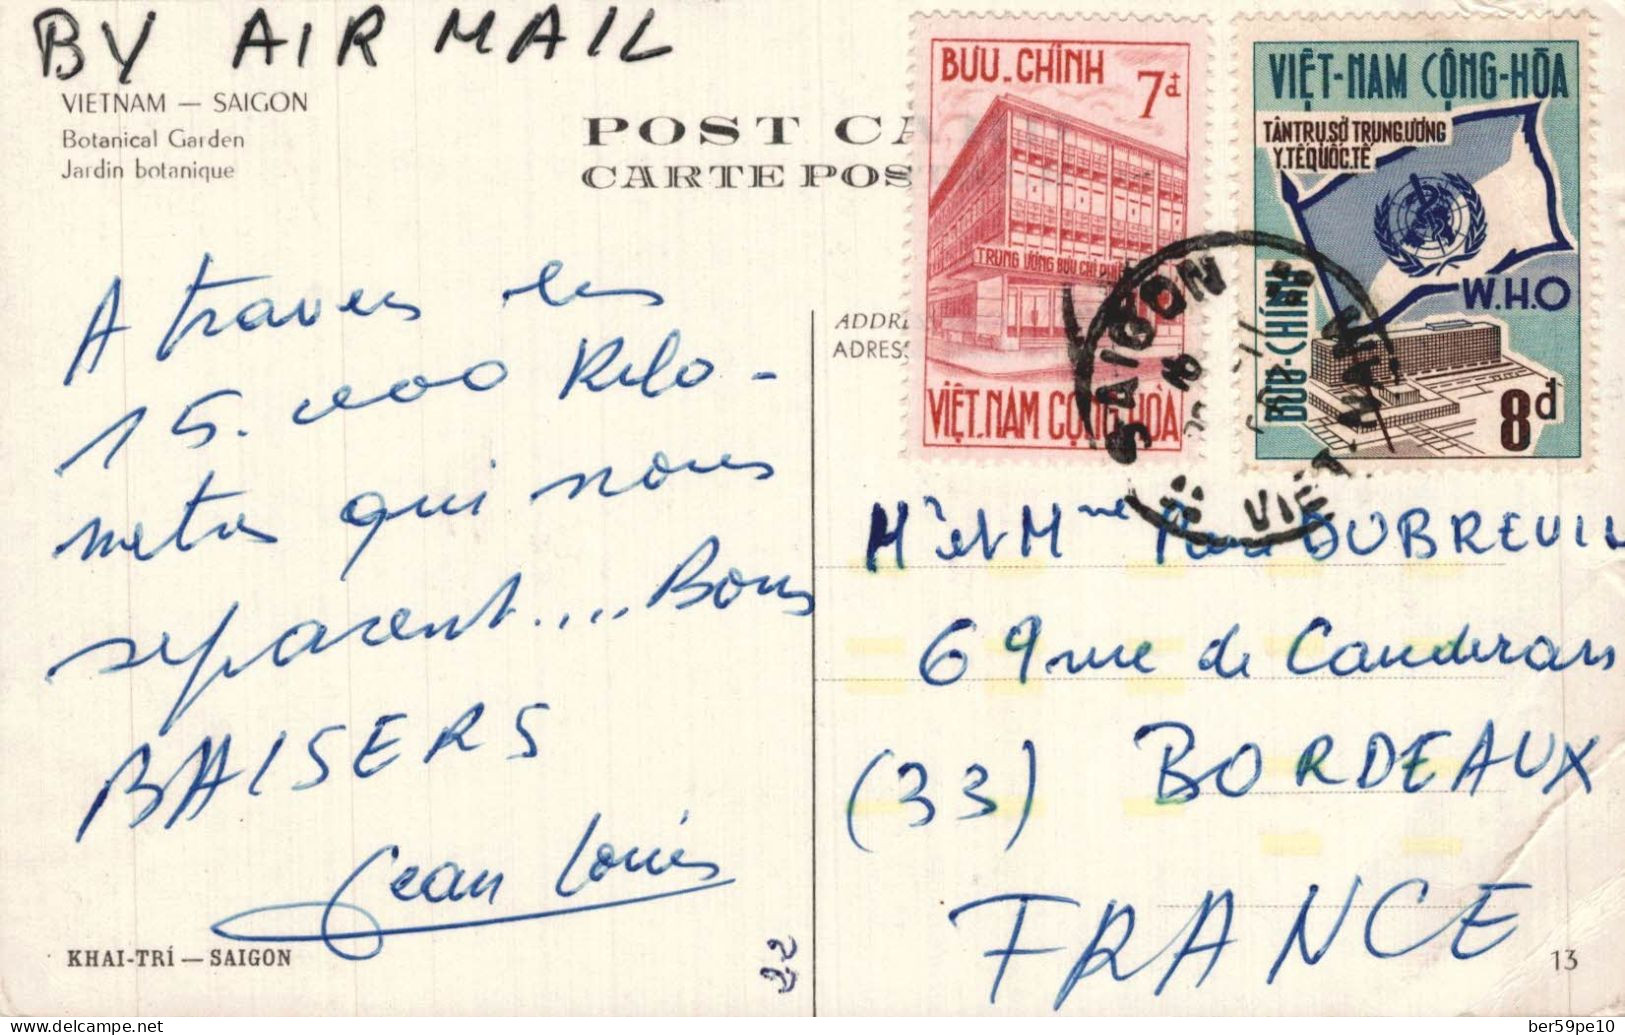 BY AIR MAIL
VIETNAM — SAIGON
Botanical Garden
Jardin botanique
POST CA
CARTE POS
BƯU-CHÍNH 7đ
TRUNG ƯƠNG BƯU CHI PHIẾU
VIỆT-NAM CỘNG-HÒA
VIỆT-NAM CỘNG-HÒA
TÂN TRỤ SỞ TRUNG ƯƠNG
Y.TẾ QUỐC.TẾ
W.H.O
BƯU-CHÍNH
8đ
SAIGON
VIET-NAM
A travers les
15.000 Kilo-
metres qui nous
separent.... Bons
BAISERS
Jean Louis
ADDRE
ADRESS
Mr et Mme DUBREUIL
69 rue de Cauderan
(33) BORDEAUX
FRANCE
KHAI-TRÍ — SAIGON
22
13
https://www.delcampe.net
ber59pe10